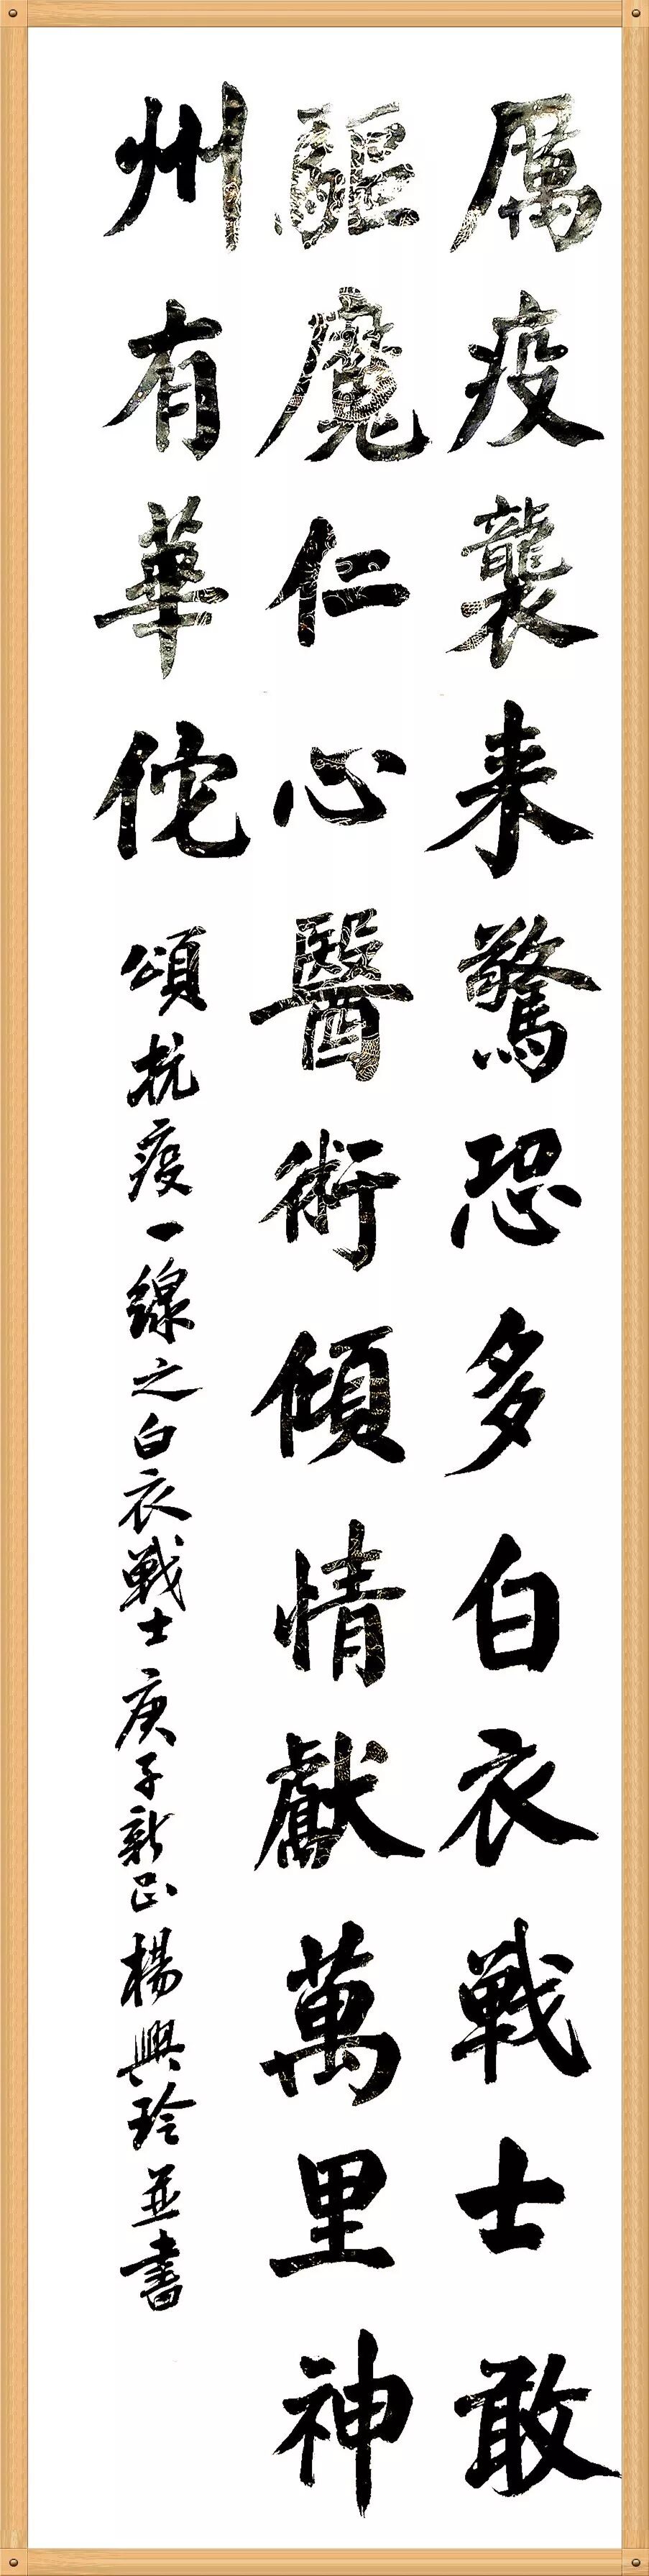 厲疫襲来驚恐多白衣戦士敢
驅魔仁心醫術傾情獻萬里神
州有華佗 頌抗疫一線之白衣戦士 庚子新正 楊興玲並書